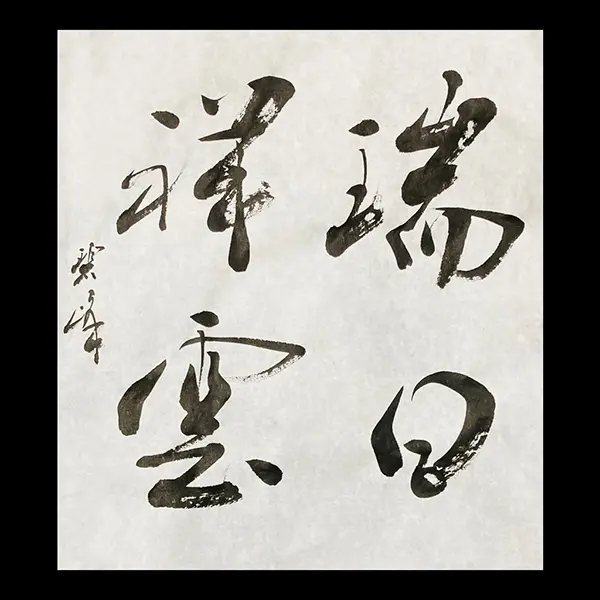 瑞日
祥雲
碧峰